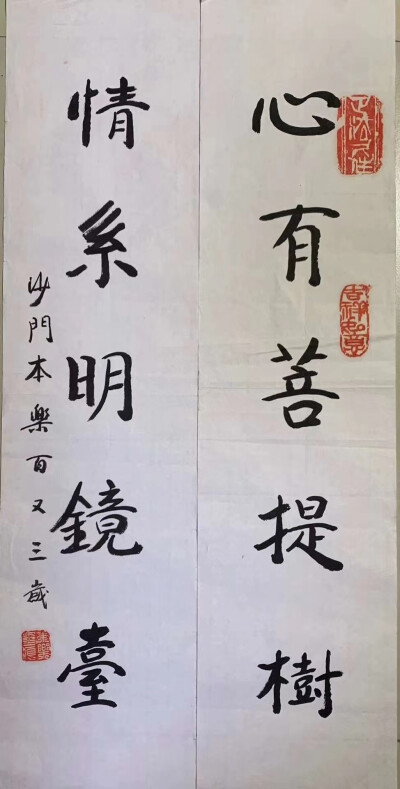 心有菩提樹
情系明鏡臺
沙門本樂百又三歲
吉祥如意